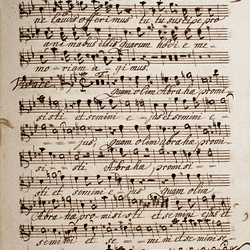 ne laudis offerimus tu tu suscipe pro
animabus illis quarum hodie me-
moriam agimus.
Quam olim Abrahae promi
sisti et semini ejus et semini e
jus, Quam olim Abrahae promi
sisti Abrahae promisi
sti et semini ejus quam olim
Abrahae promisisti et semini ejus et
semini et semini et semini